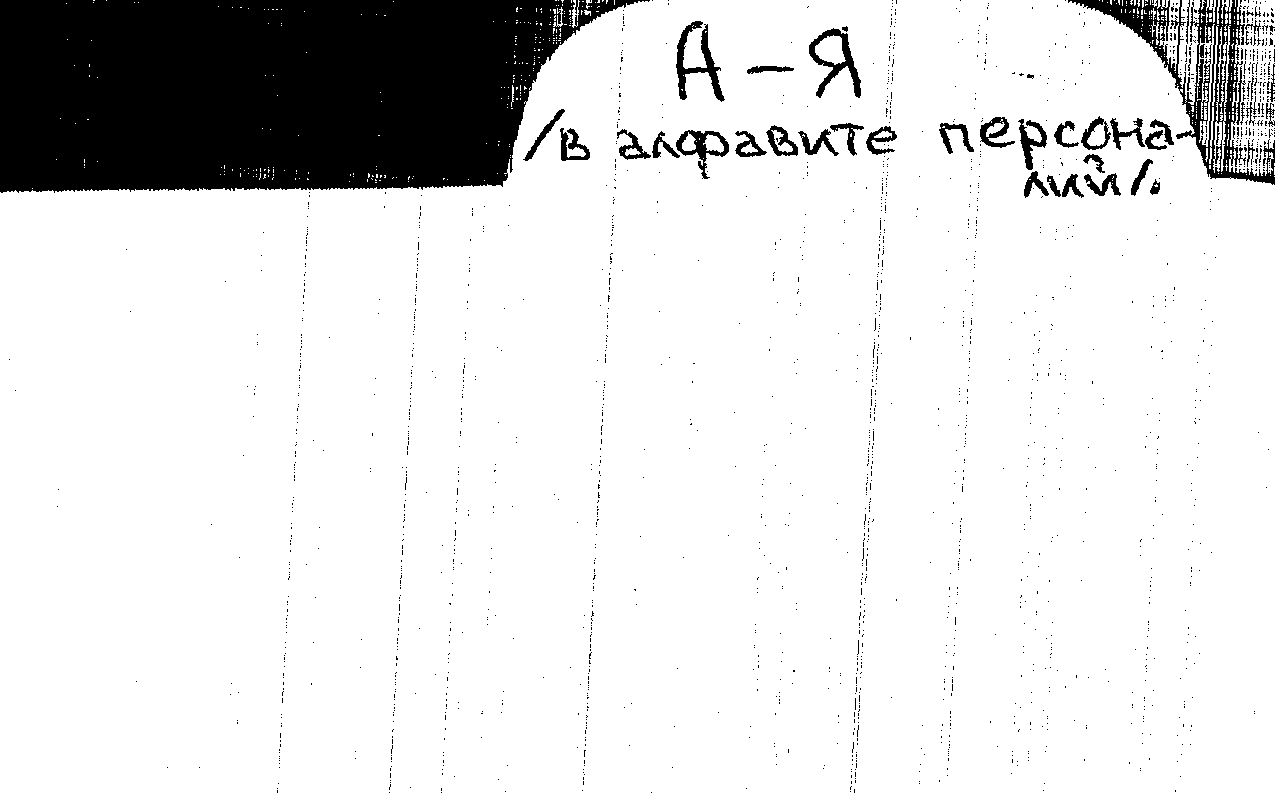 А – Я
/в алфавите персона-
лий/.